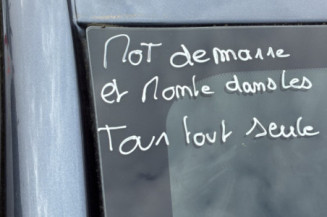 Mot demarre
et Monte dans les
Tour tout seule